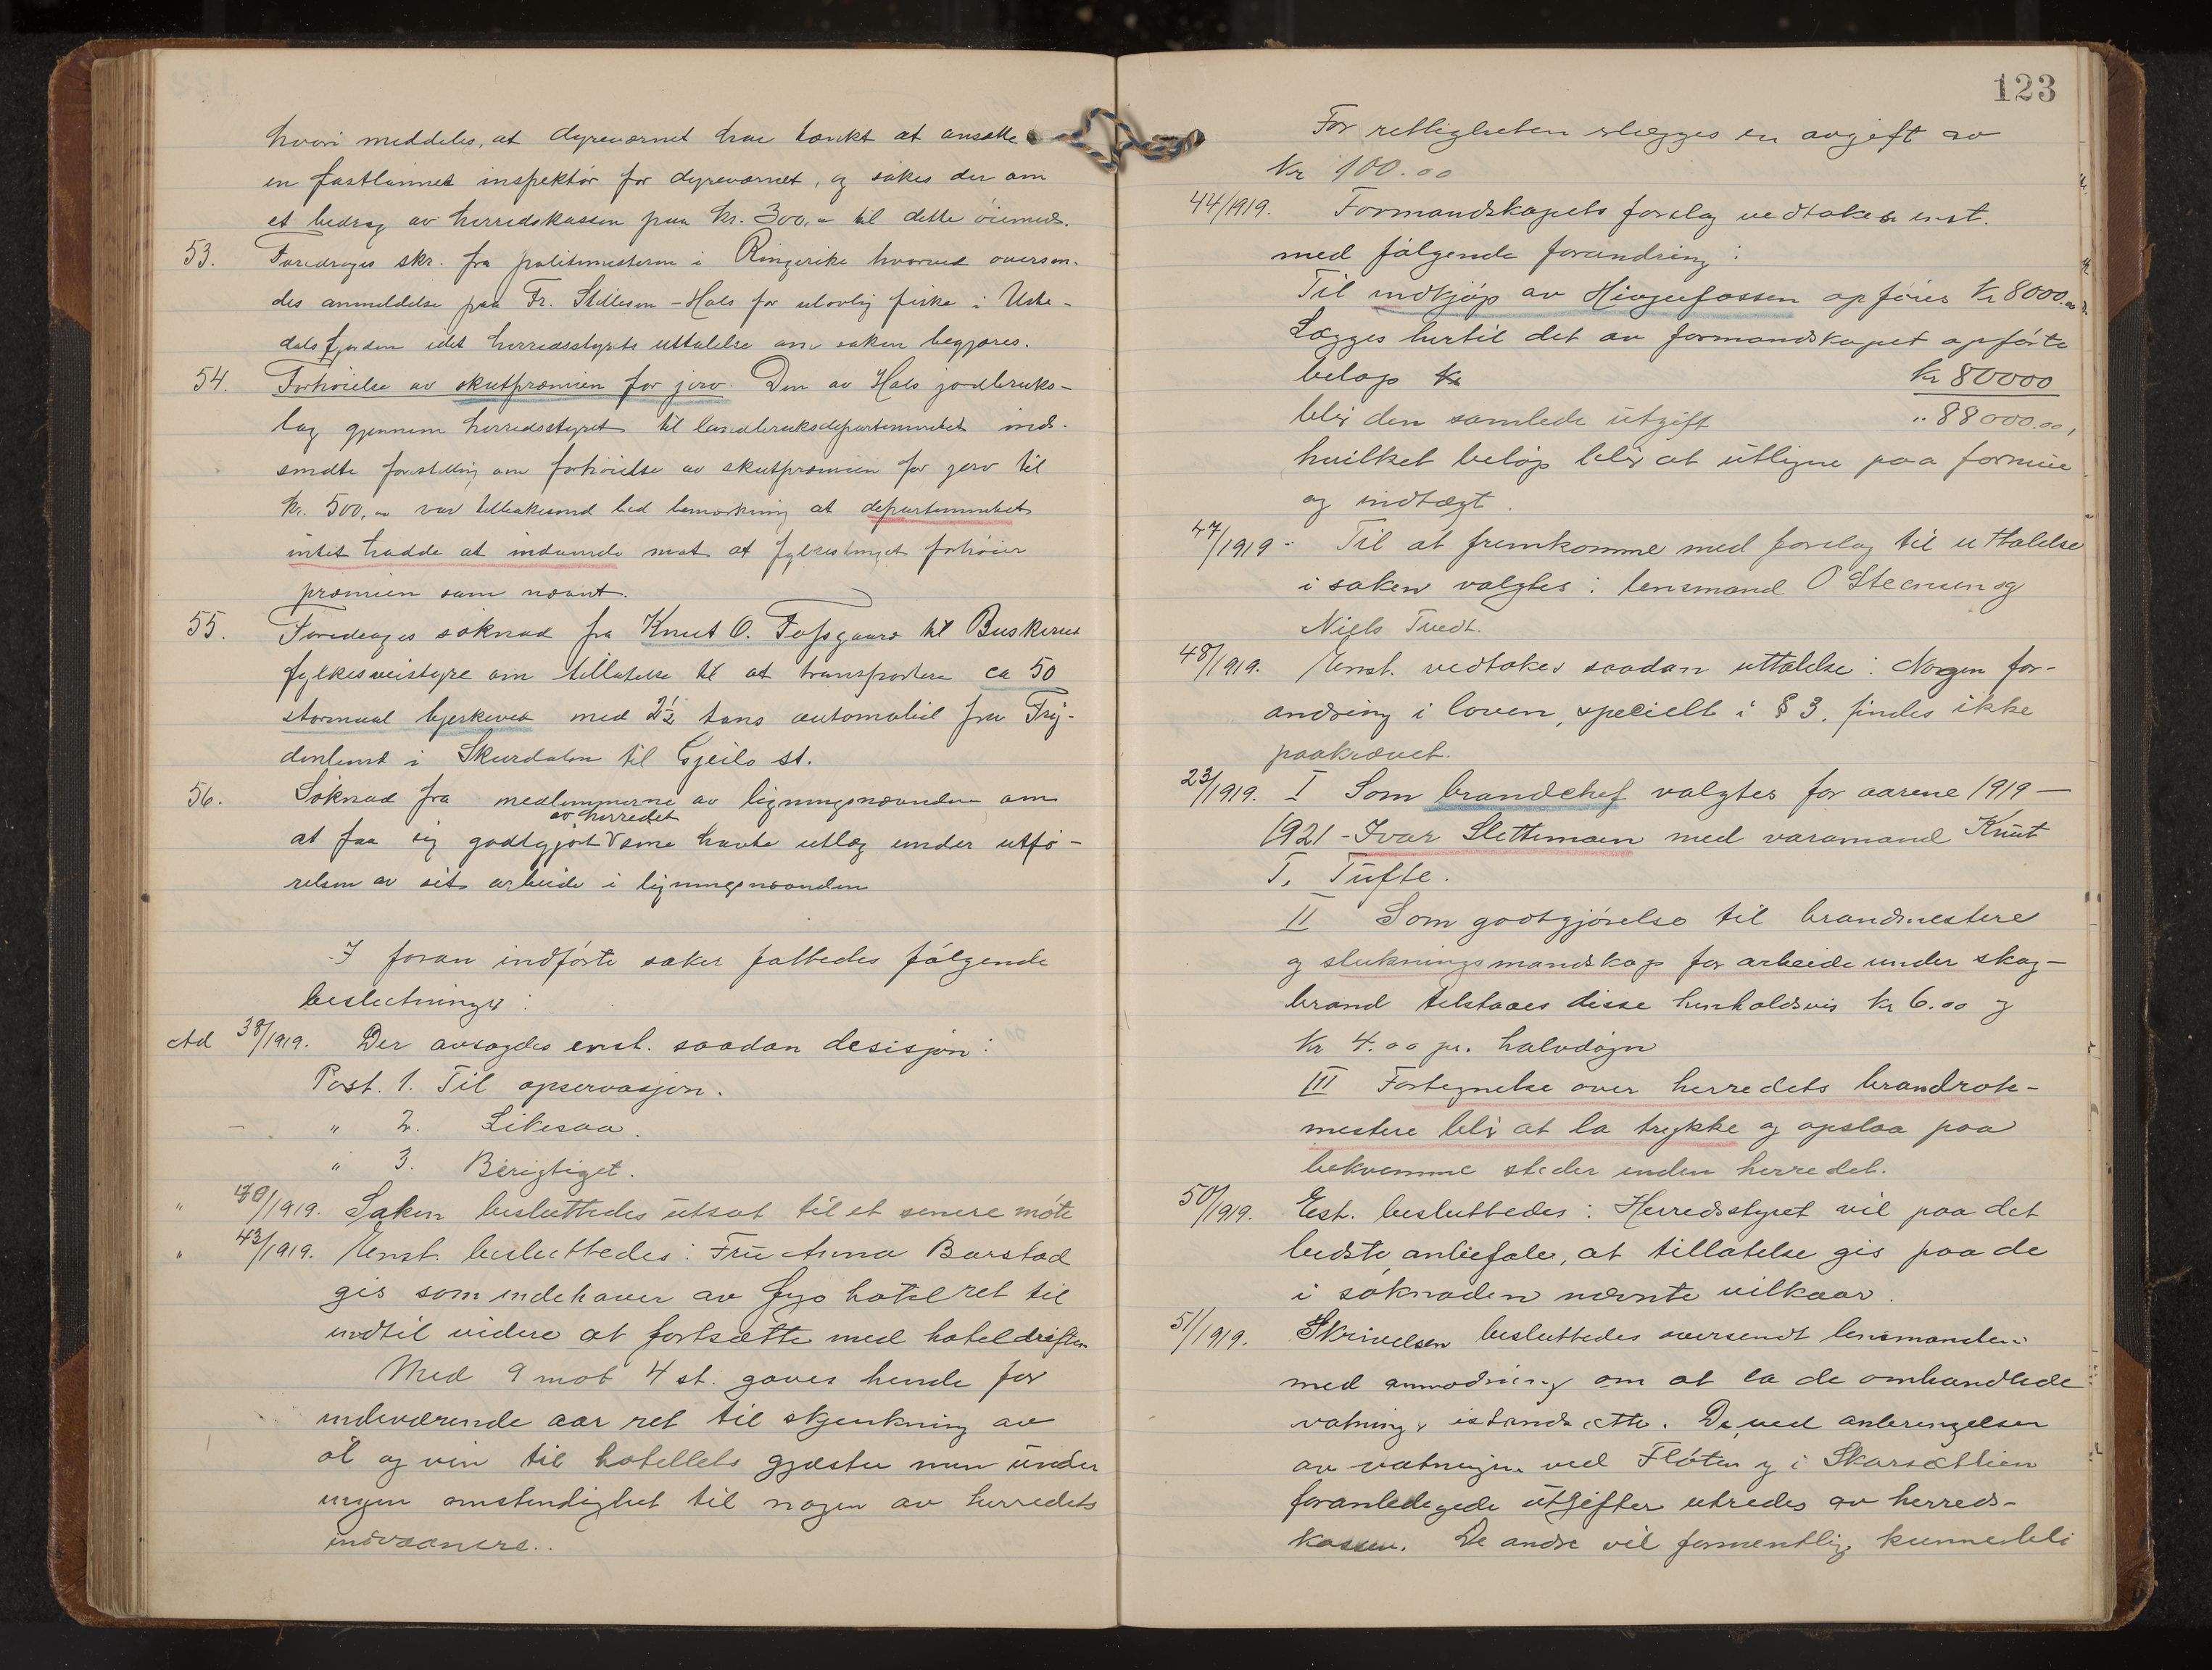 hvori meddeles, at dyreværnet har tænkt at ansætte
en fastlønnet inspektør for dyreværnet, og søkes der om
et bedrag av herredskassen paa kr. 300,- til dette øiemed.
53. Foredrages skr. fra politimesteren i Ringerike hvorved oversen-
des anmeldelse paa Fr. Stillesen - Hols for ulovlig fiske i Uste-
dalsfjorden idet herredsstyrets uttalelse om saken begjæres.
54. Forhøielse av skutpræmien for jerv. Den av Hols jordbruks-
lag gjennem herredsstyret til landbruksdepartementet ind-
sendte forestilling om forhøielse av skutpræmien for jerv til
kr. 500,- var tilbakesend ved bemærkning at departementet
intet hadde at indvende mot at fylkestinget forhøier
præmien som nævnt.
55. Foredrages søknad fra Knut O. Fossgaard til Buskerud
fylkesveistyre om tillatelse til at transportere ca 50
stormaal bjerkeved med 2½ tons automobil fra Fry-
denlund i Skurdalen til Gjeilo st.
56. Søknad fra medlemmerne av ligningsnævnden om
av herredet
at faa sig godtgjort V sine havte utlæg under utfø-
relsen av sit arbeide i ligningsnævnden
I foran indførte saker fattedes følgende
beslutninger:
Ad 38/1919. Der avsagdes enst. saadan desisjon:
Post. 1. Til opservasjon.
" 2. Likesaa.
" 3. Berigtiget.
" 40/1919. Saken besluttedes utsat til et senere møte
" 43/1919. Enst. besluttedes: Fru Anna Barstad
gis som indehaver av Fyo hotel ret til
indtil videre at fortsætte med hoteldriften
Med 9 mot 4 st. gaves hende for
indeværende aar ret til skjenkning av
øl og vin til hotellets gjæster men under
ingen omstendighet til nogen av herredets
indvaanere..
123
For rettigheten erlægges en avgift av
Kr 100.00
44/1919. Formandskapets forslag vedtokes enst.
med følgende forandring:
Til indkjøp av Hivjufossen opføres Kr 8000.00
Lægges hertil det av formandskapet opførte
beløp Kr 80000
blir den samlede utgift " 88000.00,
hvilket beløp blir at utligne paa formue
og indtægt.
47/1919. Til at fremkomme med forslag til uttalelse
i saken valgtes: lensmand O Steensen og
Niels Tvedt.
48/1919. Enst. vedtokes saadan uttalelse: Nogen for-
andring i loven, specielt i § 3, findes ikke
paakrævet.
23/1919. I Som brandchef valgtes for aarene 1919 —
1921 - Ivar Slettemoen med varamand Knut
T. Tufte.
II Som godtgjørelse til brandmestere
og slukningsmandskap for arbeide under skog-
brand tilstaaes disse henholdsvis kr 6.00 og
kr 4.00 pr. halvdøgn
III Fortegnelse over herredets brandrote-
mestere blir at la trykke og opslaa paa
bekvemme steder inden herredet.
50/1919. Est. besluttedes: Herredsstyret vil paa det
bedste anbefale, at tillatelse gis paa de
i søknaden nævnte vilkaar.
51/1919. Skrivelsen besluttedes oversendt lensmanden
med anmodning om at la de omhandlede
vatninger istandsætte. De ved anbringelsen
av vatningen ved Fløten og i Skarsætlien
foranledigede utgifter utredes av herreds-
kassen. De andre vil formentlig kunne bli